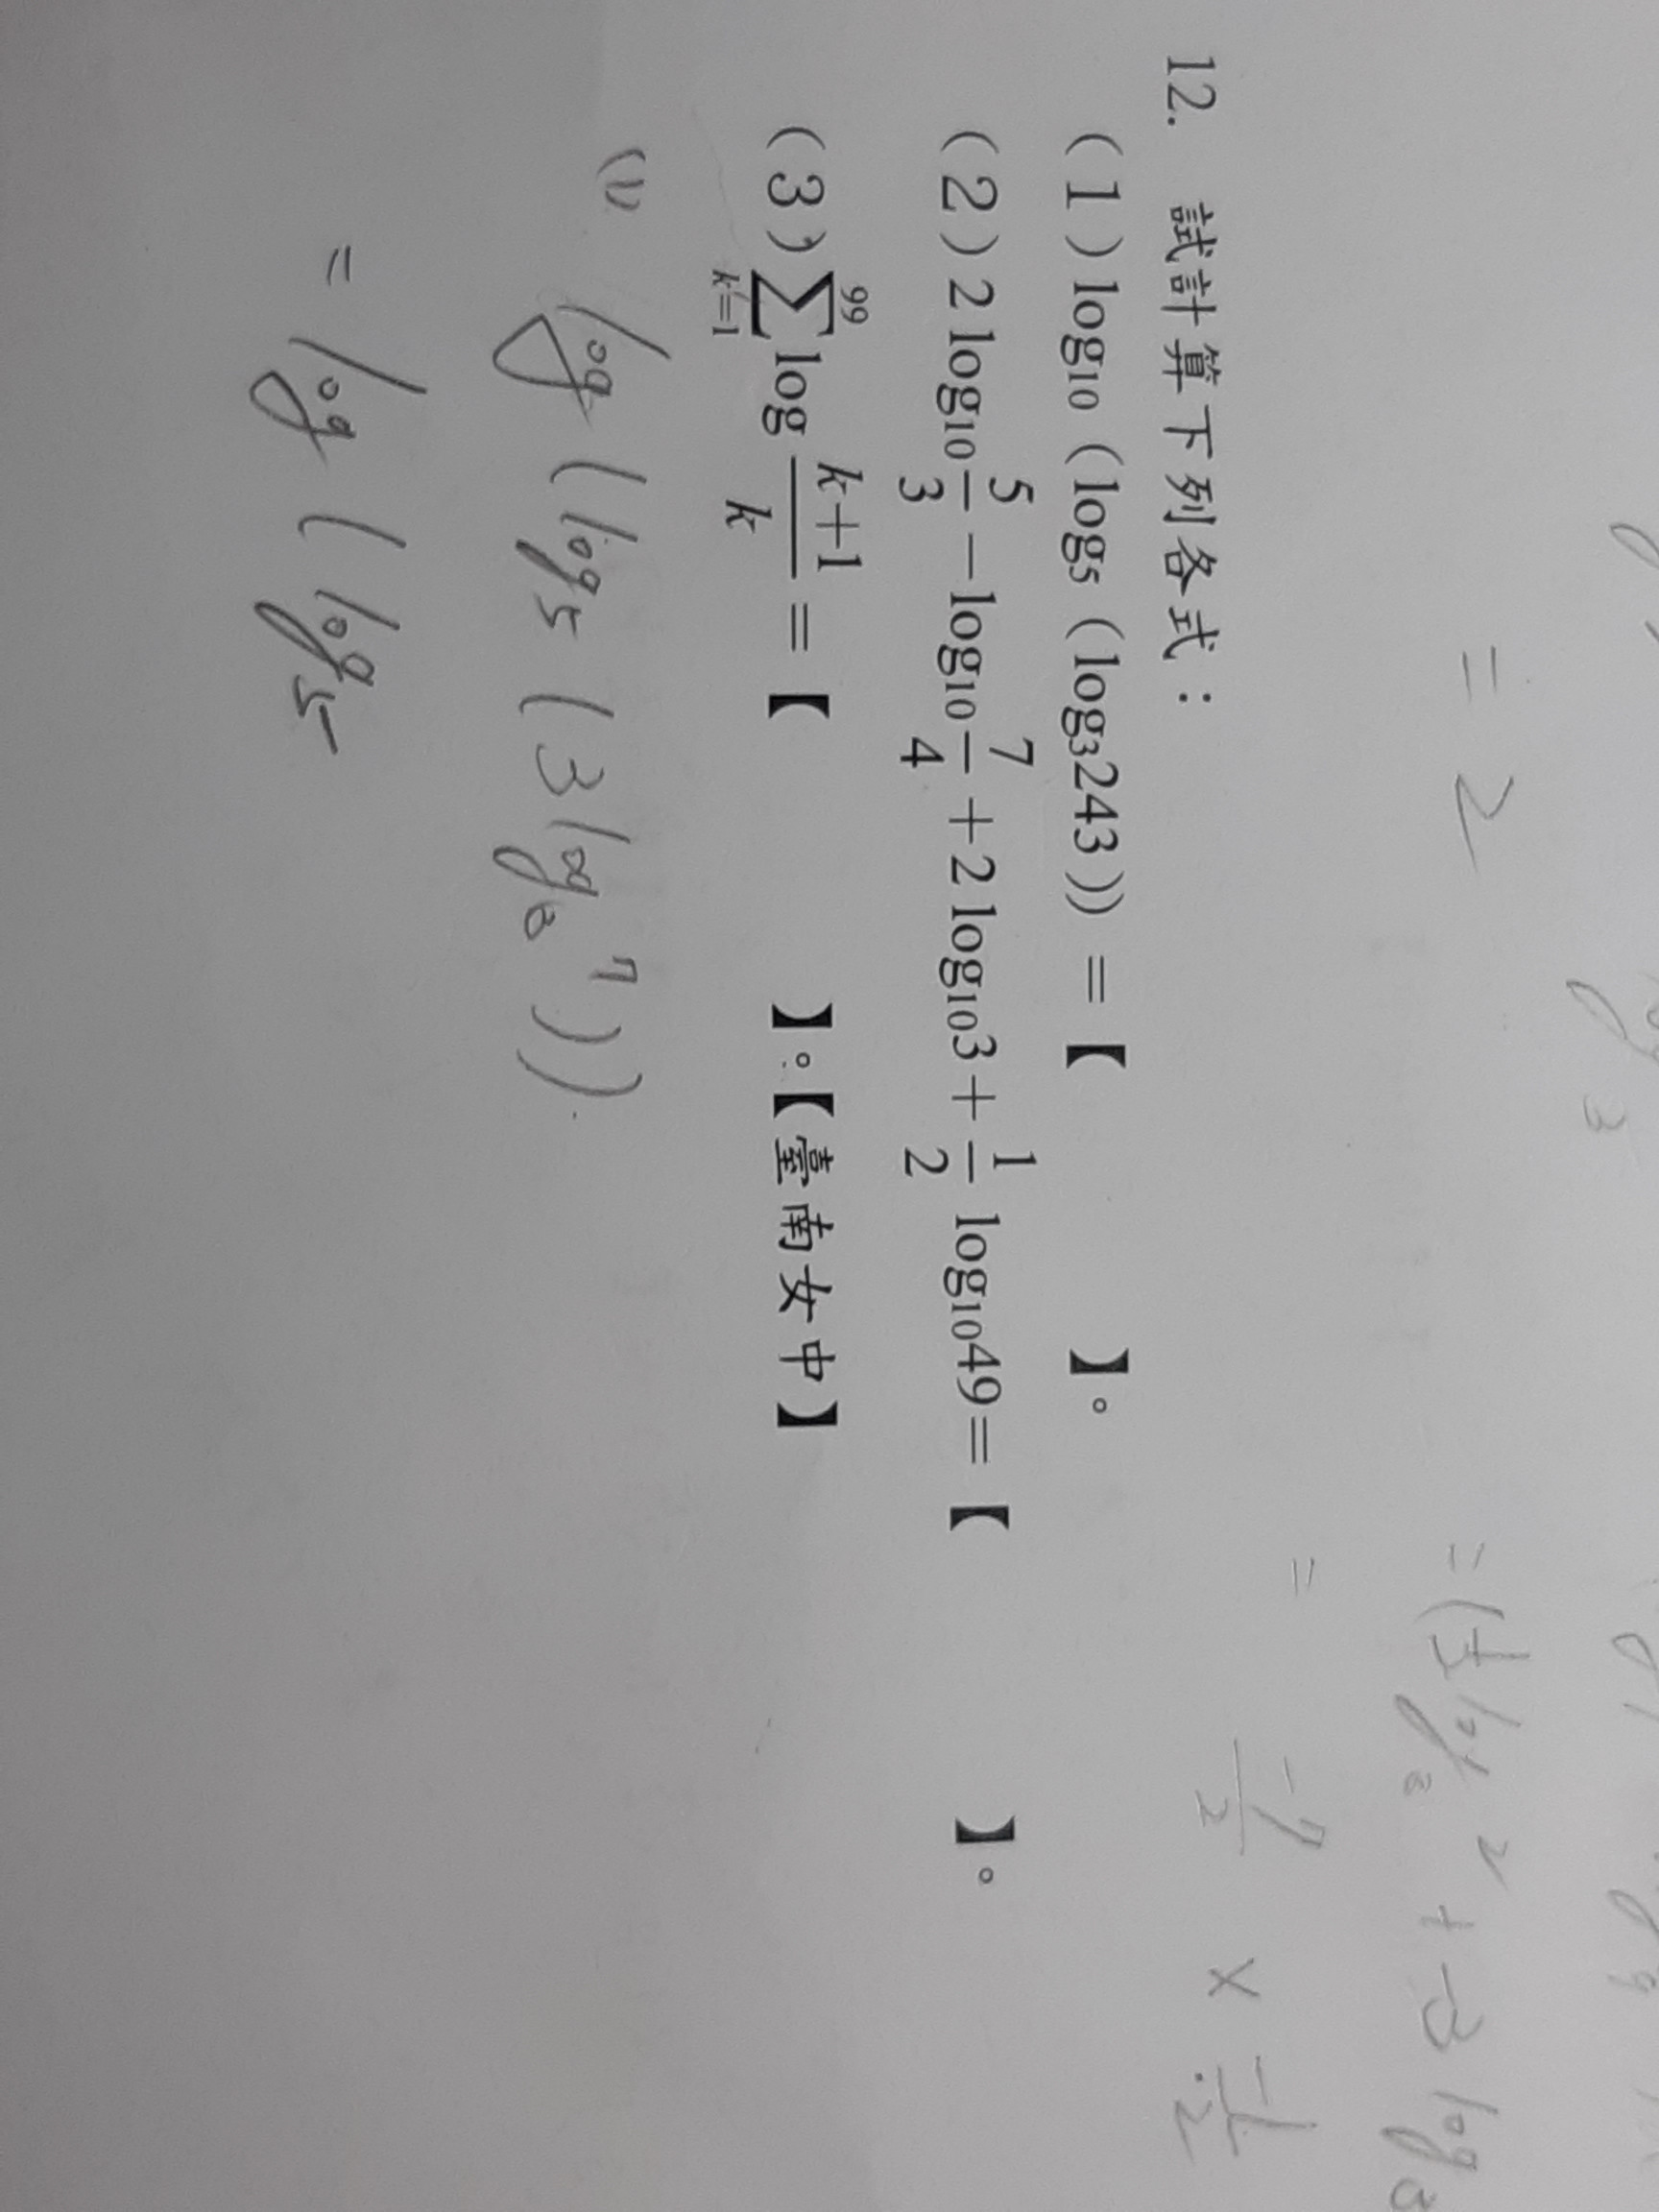 = 2
12. 試計算下列各式：
(1) log₁₀(log₅(log₃243)) =【 】。
(2) 2 log₁₀ 5/3 − log₁₀ 7/4 + 2 log₁₀3 + 1/2 log₁₀49 =【 】。
(3) ∑ₖ₌₁⁹⁹ log (k+1)/k =【 】。【臺南女中】
(1) log (log₅ (3 log₃ 7))
= log (log₅